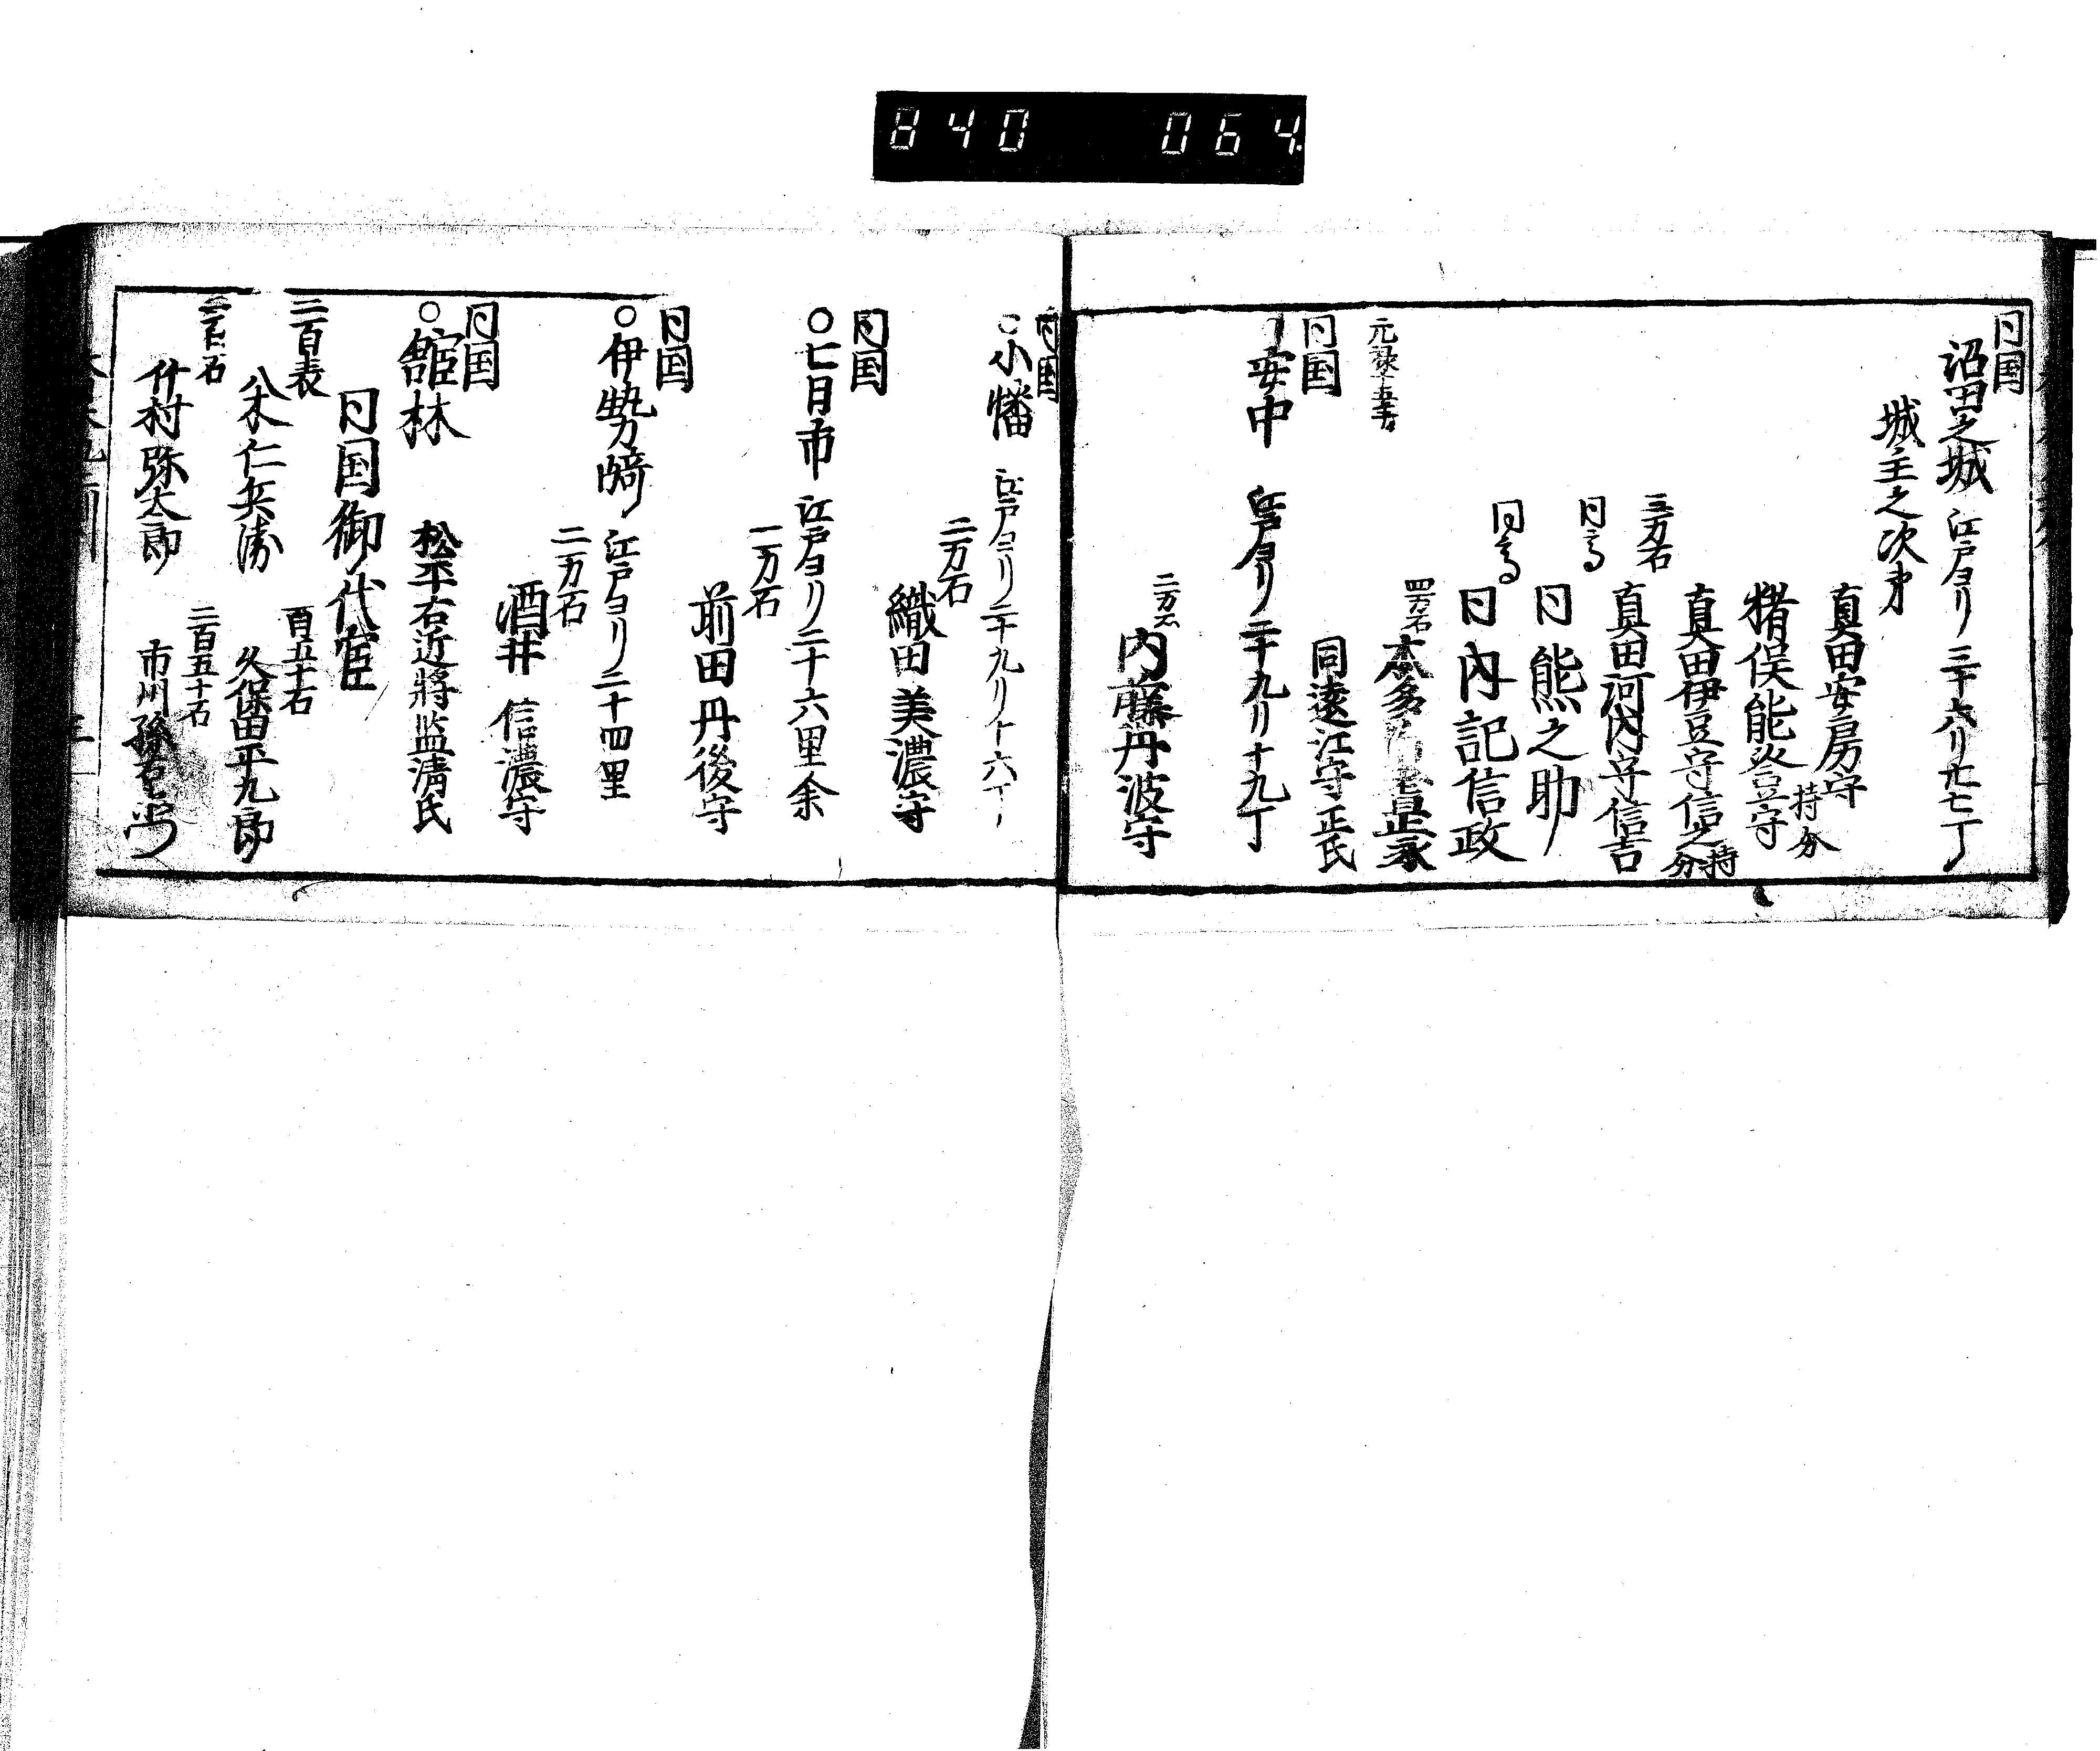 840 064
同国
沼田之城 江戸ヨリ三十六リ廿七丁
城主之次才
真田安房守
猪俣能登守 持分
真田伊豆守信之 持分
三万石
真田河内守信吉
同高
同 熊之助
同高
同 内記信政
元禄十五年
四万石
本多 正永
同遠江守正氏
同国
安中 江戸ヨリ二十九リ十九丁
二万石
内藤丹波守
同国
○小幡 江戸ヨリ二十九リ十六丁
二万石
織田美濃守
同国
○七日市 江戸ヨリ二十六里余
一万石
前田丹後守
同国
○伊勢崎 江戸ヨリ二十四里
二万石
酒井信濃守
同国
○舘林 松平右近将監清氏
同国御代官
二百表
八木仁兵衛
百五十石
久保田平九郎
三百石
竹村弥太郎
二百五十石
市川孫右衛門